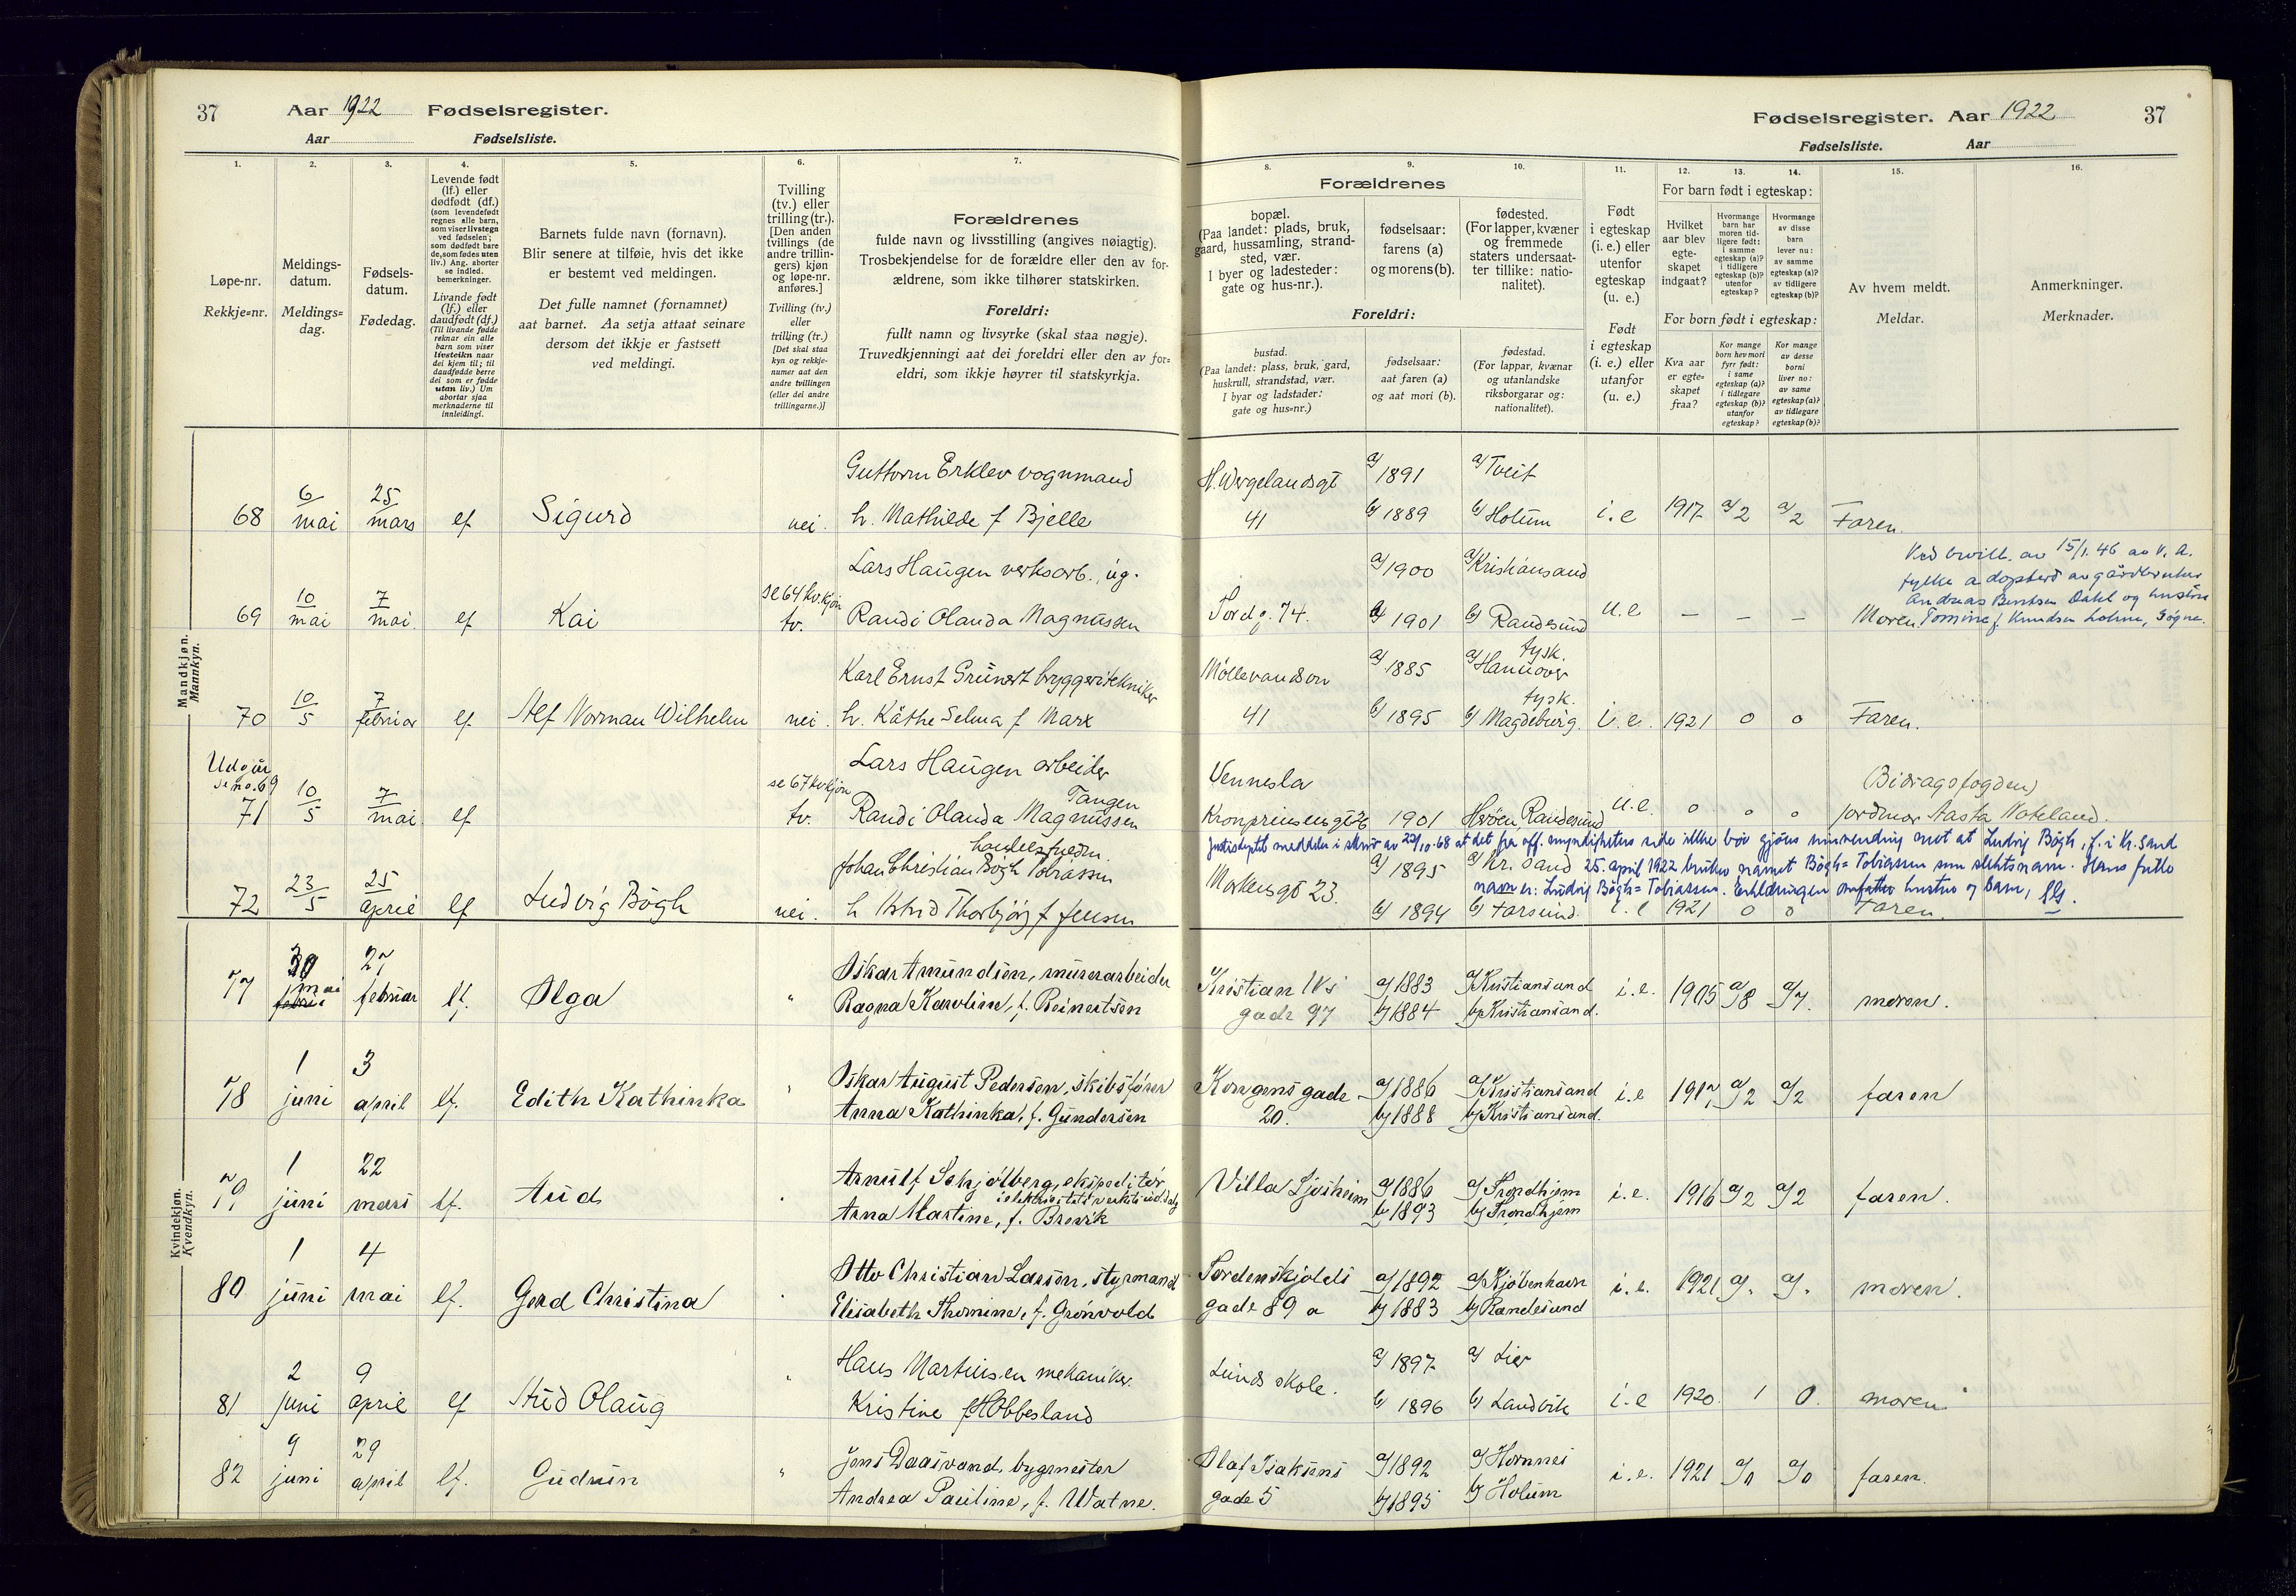 37 Aar 1922 Fødselsregister.
Aar Fødselsliste.
Fødselsregister. Aar 1922 37
Fødselsliste. Aar
1. 2. 3. 4. 5. 6. 7.
Løpe-nr.
Rekkje=nr.
Meldings-
datum.
Meldings=
dag.
Fødsels-
datum.
Fødedag.
Levende født
(lf.) eller
dødfødt (df.)
(som levendefødt
regnes alle barn,
som viser livstegn
ved fødselen;
som dødfødt bare
de, som fødes uten
liv.) Ang. aborter
se indled.
bemerkninger.
Livande født
(lf.) eller
daudfødt (df.)
(Til livande fødde
reknar ein alle
barn som viser
livsteikn naar
dei kjem til; til
daudfødde berre
dei som er fødde
utan liv.) Um
abortar sjaa
merknaderne til
innleidingi.
Barnets fulde navn (fornavn).
Blir senere at tilføie, hvis det ikke
er bestemt ved meldingen.
Det fulle namnet (fornamnet)
aat barnet. Aa setja attaat seinare
dersom det ikkje er fastsett
ved meldingi.
Tvilling
(tv.) eller
trilling (tr.).
[Den anden
tvillings (de
andre trillin-
gers) kjøn
og løpe-nr.
anføres.]
Tvilling (tv.)
eller
trilling (tr.)
[Det skal staa
kyn og rekkje-
numer aat den
andre tvillingen
(eller dei andre
trillingarne.)]
Forældrenes
fulde navn og livsstilling (angives nøiagtig).
Trosbekjendelse for de forældre eller den av for-
ældrene, som ikke tilhører statskirken.
Foreldri:
fullt namn og livsyrke (skal staa nøgje).
Truvedkjenningi aat dei foreldri eller den av for=
eldri, som ikkje høyrer til statskyrkja.
8. 9. 10. 11. 12. 13. 14. 15. 16.
Forældrenes
bopæl.
(Paa landet: plads, bruk,
gaard, hussamling, strand-
sted, vær.
I byer og ladesteder:
gate og hus-nr.).
fødselsaar:
farens (a)
og morens (b).
fødested.
(For lapper, kvæner
og fremmede
staters undersaat-
ter tillike: natio-
nalitet).
Foreldri:
bustad.
(Paa landet: plass, bruk, gard,
huskrull, strandstad, vær.
I byar og ladstader:
gate og hus=nr.)
fødselsaar:
aat faren (a)
og aat mori (b).
fødestad.
(For lappar, kvænar
og utanlandske
riksborgarar og:
nationalitet).
Født
i egteskap
(i. e.) eller
utenfor
egteskap
(u. e.)
Født
i egteskap
(i. e.) eller
utanfor
(u. e.)
For barn født i egteskap:
Hvilket
aar blev
egte-
skapet
indgaat?
Hvormange
barn har
moren tid-
ligere født:
i samme
egteskap (a)?
i tidligere
egteskap (b)?
utenfor
egteskap?
Hvormange
av disse
barn
lever nu:
av samme
egteskap (a)?
av tidligere
egteskap (b)?
For born født i egteskap:
Kva aar
er egte=
skapet
fraa?
Kor mange
born hev mori
fyrr født:
i same
egteskap (a)?
i tidlegare
egteskap (b)?
utanfor
egteskap?
Kor mange
av desse
borni
liver no:
av same
egteskap (a)?
av tidlegare
egteskap (b)?
Av hvem meldt.
Meldar.
Anmerkninger.
Merknader.
Mandkjøn.
Mannkyn.
Guttorm Erklev vognmand H. Wergelandsgt a) 1891 a) Tveit
68 6/mai 25/mars lf Sigurd nei. h. Mathilde f Bjelle 41 b) 1889 b) Holum i.e 1917 a) 2 a) 2 Faren.
Ved bevill. av 15/1. 46 av V. A.
fylke adoptert av gårdbruker
Andreas Berntsen Dahl og hustru
Tomine f. Knudsen, Søgne.
Lars Haugen verksarb., ug. a) 1900 a) Kristiansand
69 10/mai 7/mai. lf Kai se 64 kv.kjøn tv. Randi Olanda Magnussen Tordg. 74. b) 1901 b) Randesund u.e – – – Moren.
Karl Ernst Grünert bryggeritekniker Møllevandsvn a) 1885 a) Hannover tysk.
70 10/5 7/februar lf Alf Norman Wilhelm nei. h. Käthe Selma f Marx 41 b) 1895 b) Magdeburg. tysk. i.e. 1921 0 0 Faren.
Udgår
se no. 69
Lars Haugen arbeider Vennesla (Bidragsfogden)
71 10/5 7/mai. lf se 67 kv.kjøn tv. Randi Olanda Magnussen Tangen Kronprinsensgt 26 1901 Randesund u.e. 0 0 0 jordmor Aasta Hateland.
Justisdeptet meddeler i skriv av 22/10-68 at det fra off. myndigheters side ikke bør gjøres innvending mot at Ludvig Bøgh, f. i Kr.sand
25. april 1922 bruker navnet Bøgh=Tobiassen som slektsnavn. Hans fulle
navn er: Ludvig Bøgh=Tobiassen. Erklæringen omfatter hustru og barn,
Johan Christian Bøgh Tobiassen handelsfuldm. a) 1895 a) Kr. sand
72 23/5 25/april lf Ludvig Bøgh nei. h Astrid Thorbjørg f Jensen Markensgt 23. b) 1894 b) Farsund. i.e 1921 0 0 Faren.
Kvindekjøn.
Kvendkyn.
Oskar Amundsen, murerarbeider Kristian IVs a) 1883 a) Kristiansand
77 30 mai 27 februar lf. Olga " Ragna Karoline, f. Reinertsen gade 97 b) 1884 b) Kristiansand. i.e. 1905 a) 8 a) 7. moren.
Oskar August Pedersen, skibsfører Kongens gade a) 1886 a) Kristiansand
78 1 juni 3 april lf. Edith Kathinka " Anna Kathinka, f. Gundersen 20. b) 1888 b) Kristiansand. i.e 1917 a) 2 a) 2 faren
Arnulf Schjølberg, ekspeditør
79 1 juni 22 mars lf. Aud " Anna Martine, f. Brevik Villa Ljosheim a) 1886 b) 1893 a) Trondhjem b) Trondhjem i.e. 1916 a) 2 a) 2 faren.
Otto Christian Larsen, styrmand Tordenskjolds a) 1892 a) Kjøbenhavn
80 1 juni 4 mai lf. Gerd Christina " Elisabeth Thomine, f. Grønvold gade 89 a b) 1883 b) Randesund i.e. 1921 a). a). moren.
Hans Martinsen mekaniker. a) 1897 a) Lier
81 2 juni 9 april lf Astrid Olaug " Kristine f Abbesland Lunds skole. b) 1896 b) Landvik i.e 1920 1 0. moren
Jens Daasvand, bygmester Olaf Isaksens a) 1892 a) Hornnes
82 9 juni 29 april lf. Gudrun " Andrea Pauline, f. Watne. gade 5 b) 1895 b) Holum i.e. 1921 a) 0 a) 0 faren.